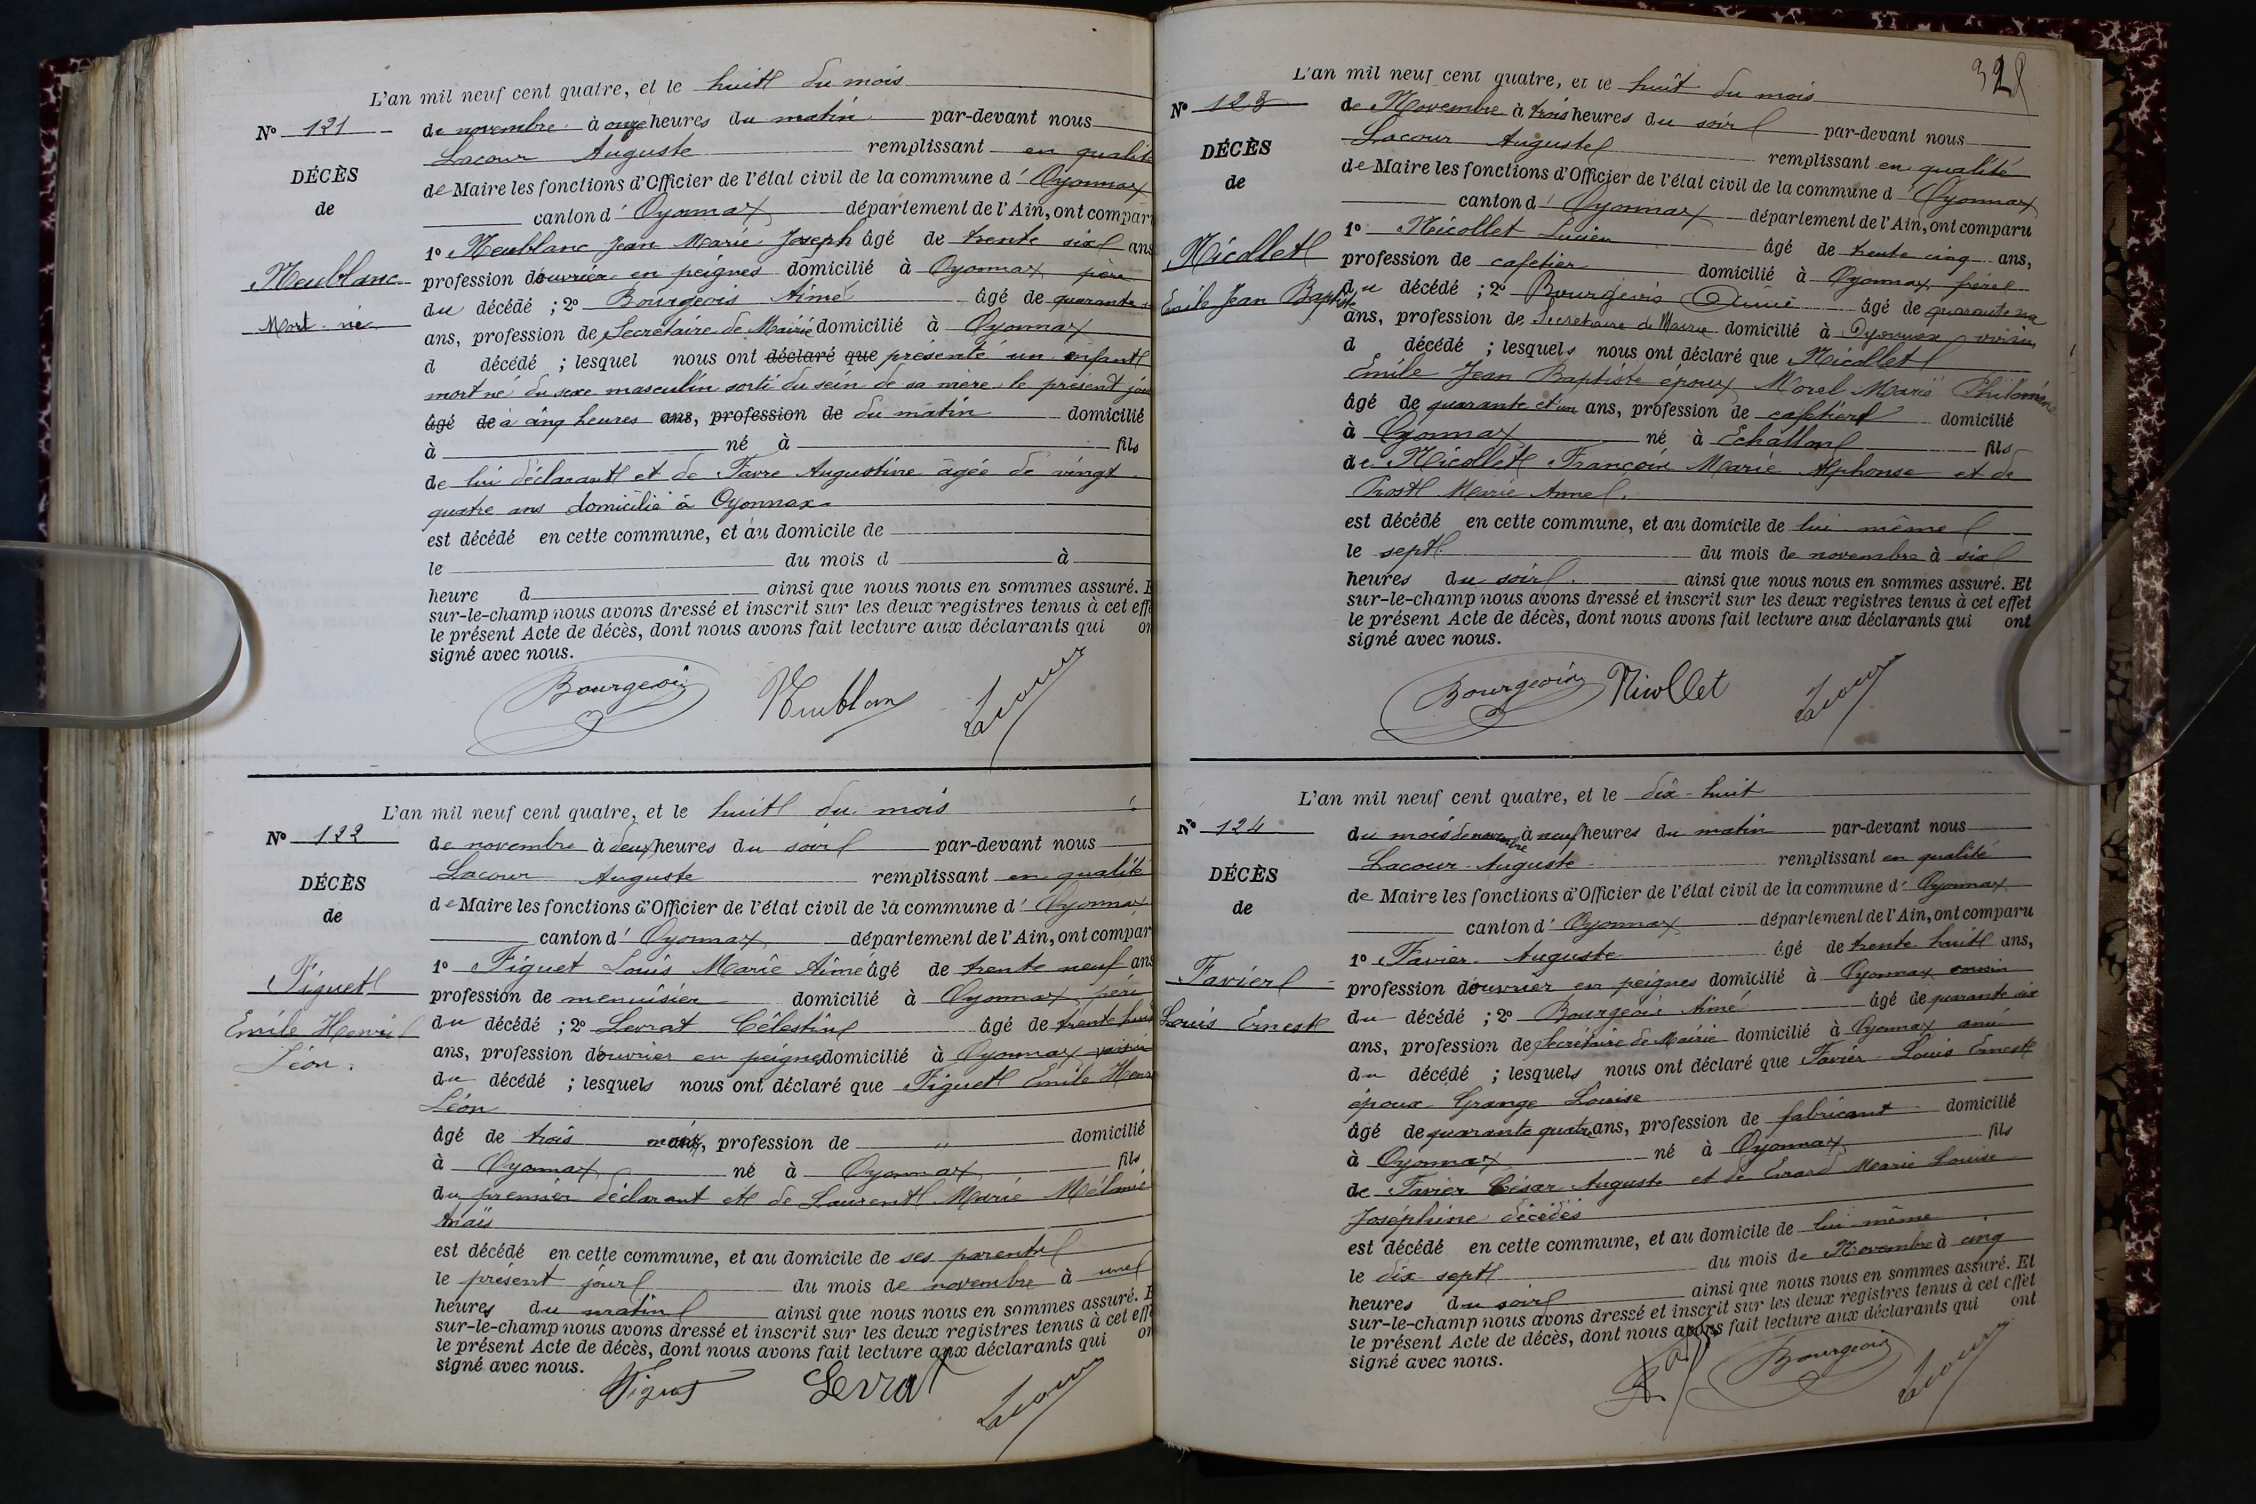 L'an mil neuf cent quatre, et le huit du mois
N° 121
de novembre à onze heures du matin par-devant nous
Lacour Auguste remplissant en qualité
DÉCÈS
de Maire les fonctions d'Officier de l'état civil de la commune d' Oyonnax
de
canton d' Oyonnax département de l'Ain, ont compar
1° Neublanc Jean Marie Joseph âgé de trente six ans
Neublanc
profession d'ouvrier en peignes domicilié à Oyonnax père
du décédé ; 2° Bourgeois Aimé âgé de quarante
Mort-né
ans, profession de Secrétaire de Mairie domicilié à Oyonnax
d décédé ; lesquel nous ont déclaré que présenté un enfant
mort né du sexe masculin sorti du sein de sa mère le présent jour
âgé de à cinq heures ans, profession de du matin domicilié
à né à fils
de lui déclarant et de Favre Augustine âgée de vingt
quatre ans domicilié à Oyonnax
est décédé en cette commune, et au domicile de
le du mois d à
heure d ainsi que nous nous en sommes assuré. E
sur-le-champ nous avons dressé et inscrit sur les deux registres tenus à cet effe
le présent Acte de décès, dont nous avons fait lecture aux déclarants qui on
signé avec nous.
Bourgeois Neublanc Lacour
L'an mil neuf cent quatre, et le huit du mois
N° 122
de novembre à deux heures du soir par-devant nous
Lacour Auguste remplissant en qualité
DÉCÈS
de Maire les fonctions d'Officier de l'état civil de la commune d' Oyonnax
de
canton d' Oyonnax département de l'Ain, ont compar
1° Figuet Louis Marie Aimé âgé de trente neuf ans
Figuet
profession de menuisier domicilié à Oyonnax père
Emile Henri
du décédé ; 2° Levrat Célestin âgé de trente huit
Léon.
ans, profession d'ouvrier en peignes domicilié à Oyonnax voisin
du décédé ; lesquels nous ont déclaré que Figuet Emile Henri
Léon
âgé de trois mois ans, profession de " domicilié
à Oyonnax né à Oyonnax fils
du premier déclarant et de Laurent Marie Mélanie
Anaïs
est décédé en cette commune, et au domicile de ses parents
le présent jour du mois de novembre à une
heures du matin ainsi que nous nous en sommes assuré. E
sur-le-champ nous avons dressé et inscrit sur les deux registres tenus à cet effe
le présent Acte de décès, dont nous avons fait lecture aux déclarants qui on
signé avec nous.
Figuet Levrat Lacour
328
L'an mil neuf cent quatre, et le huit du mois
N° 123
de Novembre à trois heures du soir par-devant nous
Lacour Auguste remplissant en qualité
DÉCÈS
de Maire les fonctions d'Officier de l'état civil de la commune d' Oyonnax
de
canton d' Oyonnax département de l'Ain, ont comparu
1° Nicollet Lucien âgé de trente cinq ans,
Nicollet
profession de cafetier domicilié à Oyonnax frère
Emile Jean Baptiste
du décédé ; 2° Bourgeois Aimé âgé de quarante six
ans, profession de Secrétaire de Mairie domicilié à Oyonnax voisin
d décédé ; lesquels nous ont déclaré que Nicollet
Emile Jean Baptiste époux Morel Marie Philomène
âgé de quarante et un ans, profession de cafetier domicilié
à Oyonnax né à Echallon fils
de Nicollet François Marie Alphonse et de
Prost Marie Anne.
est décédé en cette commune, et au domicile de lui même
le sept du mois de novembre à six
heures du soir. ainsi que nous nous en sommes assuré. Et
sur-le-champ nous avons dressé et inscrit sur les deux registres tenus à cet effet
le présent Acte de décès, dont nous avons fait lecture aux déclarants qui ont
signé avec nous.
Bourgeois Nicollet Lacour
L'an mil neuf cent quatre, et le dix-huit
N° 124
du mois de novembre à neuf heures du matin par-devant nous
Lacour Auguste remplissant en qualité
DÉCÈS
de Maire les fonctions d'Officier de l'état civil de la commune d' Oyonnax
de
canton d' Oyonnax département de l'Ain, ont comparu
1° Favier Auguste âgé de trente huit ans,
Favier
profession d'ouvrier en peignes domicilié à Oyonnax cousin
Louis Ernest
du décédé ; 2° Bourgeois Aimé âgé de quarante six
ans, profession de Secrétaire de Mairie domicilié à Oyonnax ami
du décédé ; lesquels nous ont déclaré que Favier Louis Ernest
époux Grange Louise
âgé de quarante quatre ans, profession de fabricant domicilié
à Oyonnax né à Oyonnax fils
de Favier César Auguste et de Evrard Marie Louise
Joséphine décédés
est décédé en cette commune, et au domicile de lui-même
le dix sept du mois de Novembre à cinq
heures du soir ainsi que nous nous en sommes assuré. Et
sur-le-champ nous avons dressé et inscrit sur les deux registres tenus à cet effet
le présent Acte de décès, dont nous avons fait lecture aux déclarants qui ont
signé avec nous.
Bourgeois Lacour